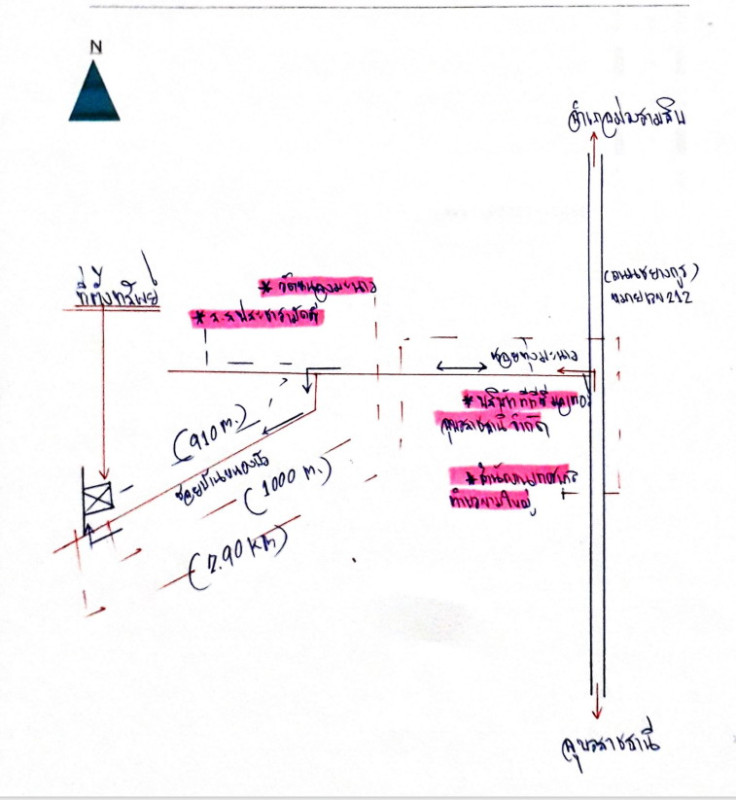 N
อำเภอม่วงสามสิบ
(ถนนชยางกูร)
หมายเลข 212
ที่ตั้งทรัพย์
* วัดหนองมะนาว
* ร.ร ประชาสามัคคี
ซอยทุ่งมะนาว
* บริษัท
อุบลราชธานี จำกัด
(910 m.)
ซอยบ้านหนองบัว
(1000 m.)
* สำนักงานเทศบาล
(7.90 KM)
อุบลราชธานี